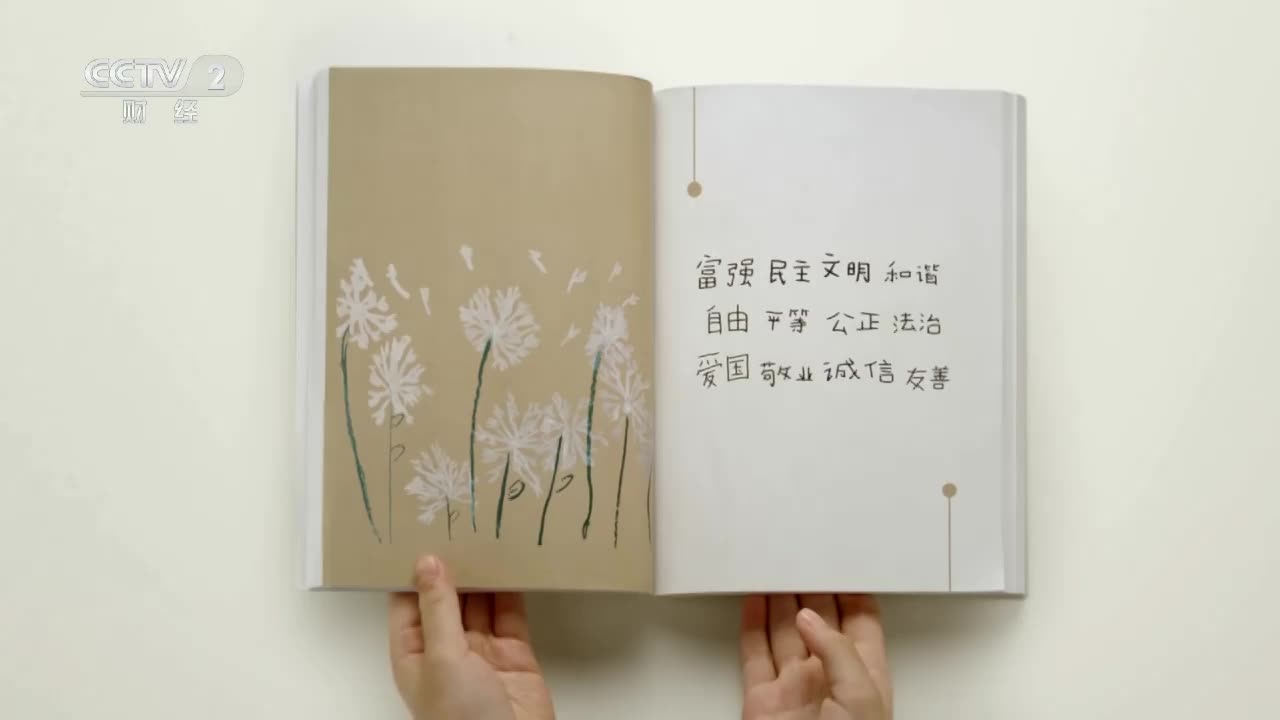 CCTV 2
财经
富强 民主 文明 和谐
自由 平等 公正 法治
爱国 敬业 诚信 友善